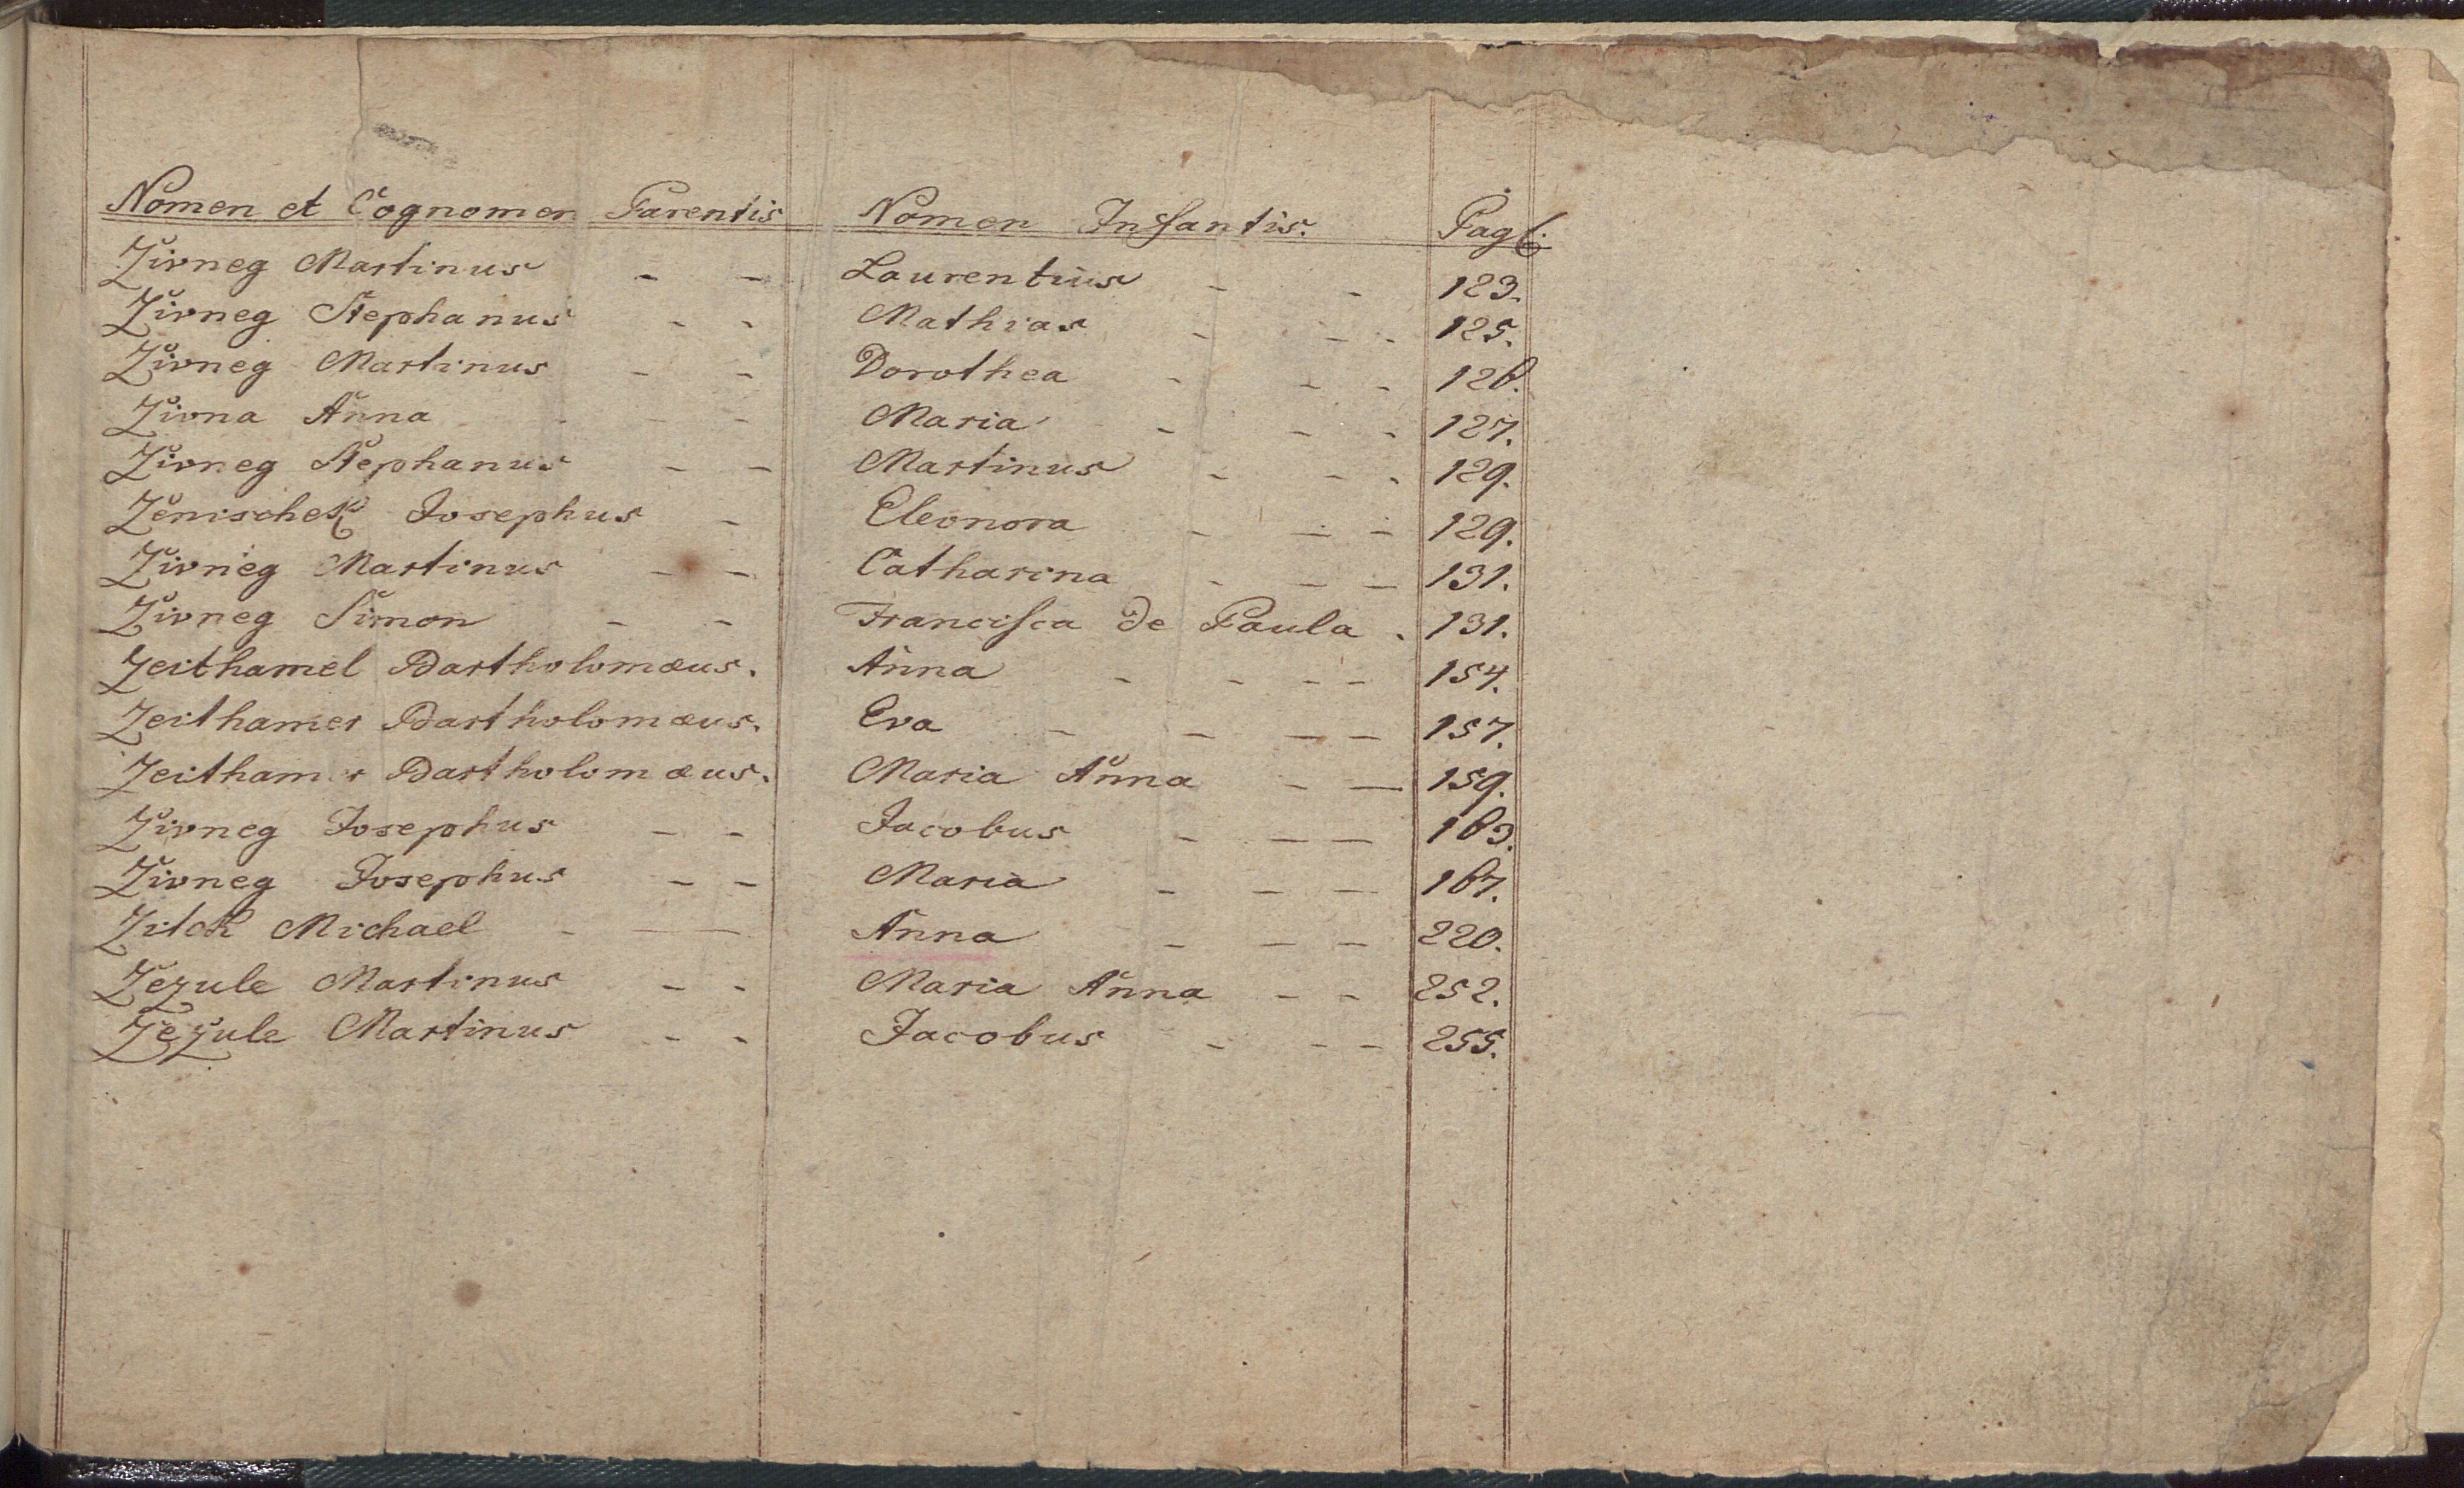 Nomen et Cognomen Parentis Nomen Infantis. Pag:
Živneg Martinus - - Laurentius - - 123.
Živneg Stephanus - - Mathias - - - 125.
Živneg Martinus - - Dorothea - - - 126.
Živna Anna - - - Maria - - - 127.
Živneg Stephanus - - Martinus - - - 129.
Ženischek Josephus - Eleonora - - - 129.
Živneg Martinus - - Catharina - - - 131.
Živneg Simon - - Francisca de Paula . 131.
Zeithamel Bartholomæus. Anna - - - - 154.
Zeithamer Bartholomæus. Eva - - - - 157.
Zeithamer Bartholomæus. Maria Anna - - 159.
Živneg Josephus - - Jacobus - - - 163.
Živneg Josephus - - Maria - - - 167.
Zilck Michael - - - Anna - - - 220.
Žezule Martinus - - Maria Anna - - 252.
Žežule Martinus - - Jacobus - - - 255.